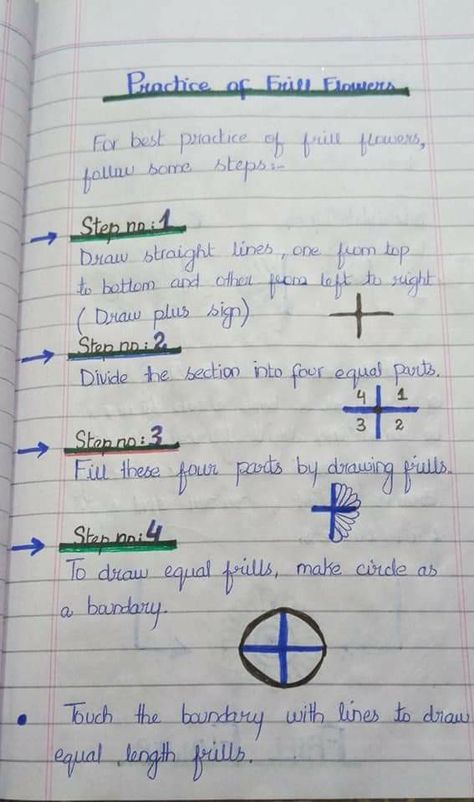 Practice of Frill Flowers
For best practice of frill flowers,
follow some steps:-
Step no:1
Draw straight lines, one from top
to bottom and other from left to right
(Draw plus sign)
Step no:2
Divide the section into four equal parts.
4 1
3 2
Step no:3
Fill these four parts by drawing frills.
Step no:4
To draw equal frills, make circle as
a boundary.
• Touch the boundary with lines to draw
equal length frills.